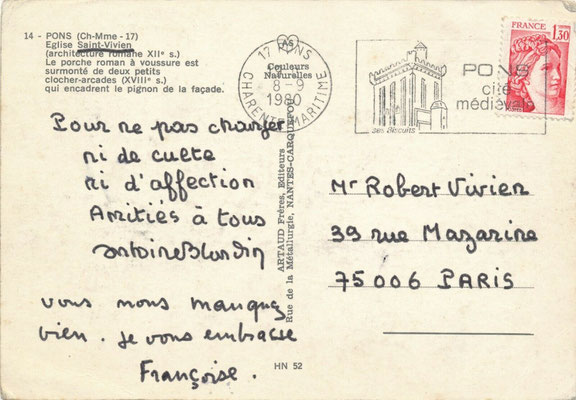 14 - PONS (Ch-Mme - 17)
Eglise Saint-Vivien
(architecture romane XIIe s.)
Le porche roman à voussure est
surmonté de deux petits
clocher-arcades (XVIIIe s.)
qui encadrent le pignon de la façade.
AS
Couleurs
Naturelles
17 PONS
8-9
1980
CHARENTE MARITIME
PONS
cité
médiévale
ses Biscuits
FRANCE
1,30
Pour ne pas changer
ni de culte
ni d'affection
Amitiés à tous
Antoine Blondin
vous nous manquez
bien. Je vous embrasse
Françoise.
ARTAUD Frères, Editeurs
Rue de la Métallurgie, NANTES-CARQUEFOU
HN 52
Mr Robert Vivien
39 rue Mazarine
75006 PARIS